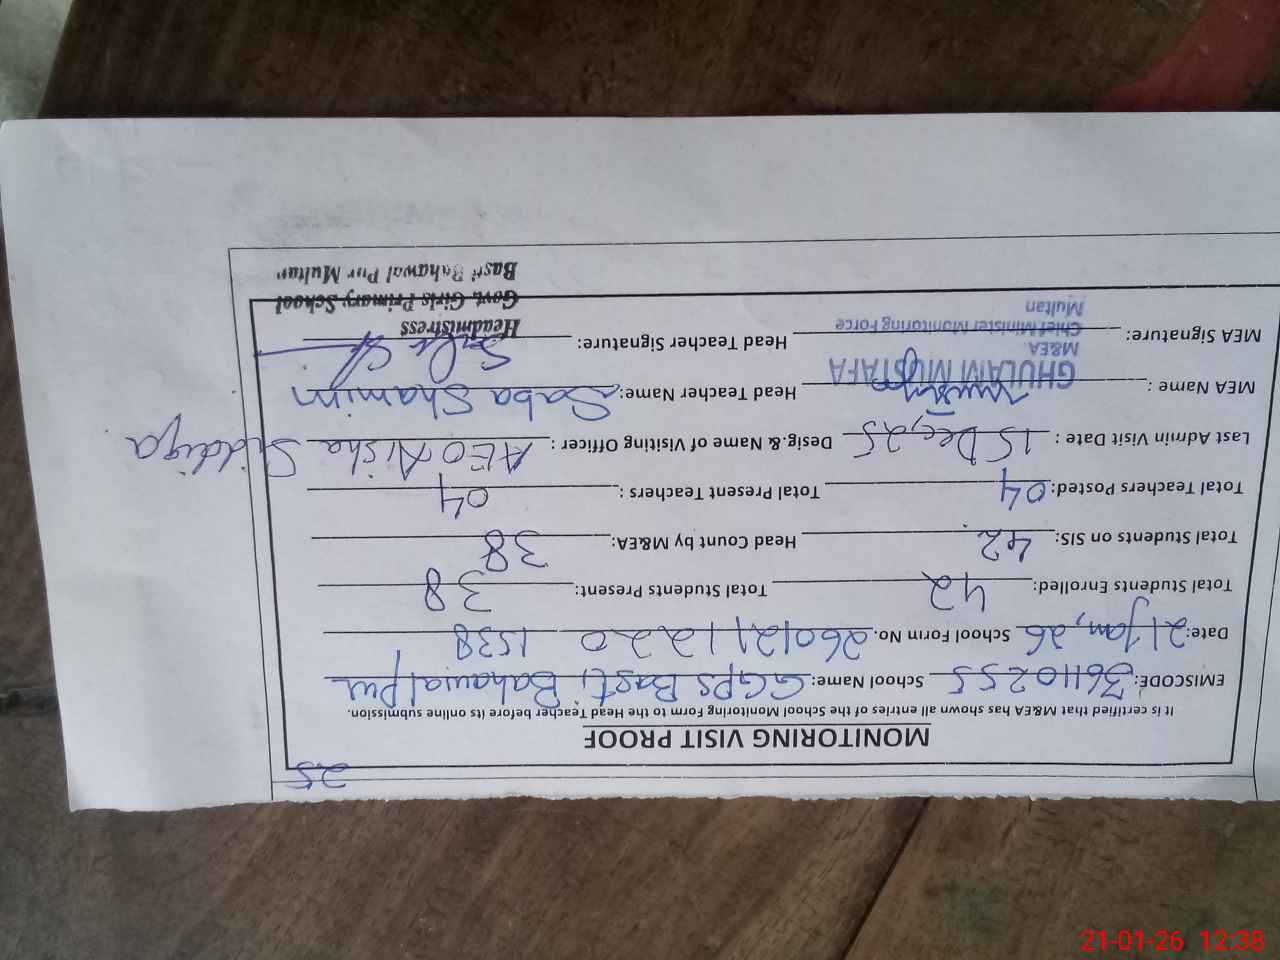 25
MONITORING VISIT PROOF
It is certified that M&EA has shown all entries of the School Monitoring Form to the Head Teacher before its online submission.
EMISCODE: 36110255 School Name: GGPS Basti Bahawalpur
Date: 21 Jan, 26 School Form No. 2601211220 1538
Total Students Enrolled: 42 Total Students Present: 38
Total Students on SIS: 42 Head Count by M&EA: 38
Total Teachers Posted: 04 Total Present Teachers: 04
Last Admin Visit Date: 15 Dec, 25 Desig.& Name of Visiting Officer: AEO Aisha Siddiqa
MEA Name: GHULAM MUSTAFA Head Teacher Name: Saba Shamim
M&EA.
MEA Signature: Chief Minister Monitoring Force Head Teacher Signature:
Multan
Headmistress
Govt. Girls Primary School
Basti Bahawal Pur Multan
21-01-26 12:38